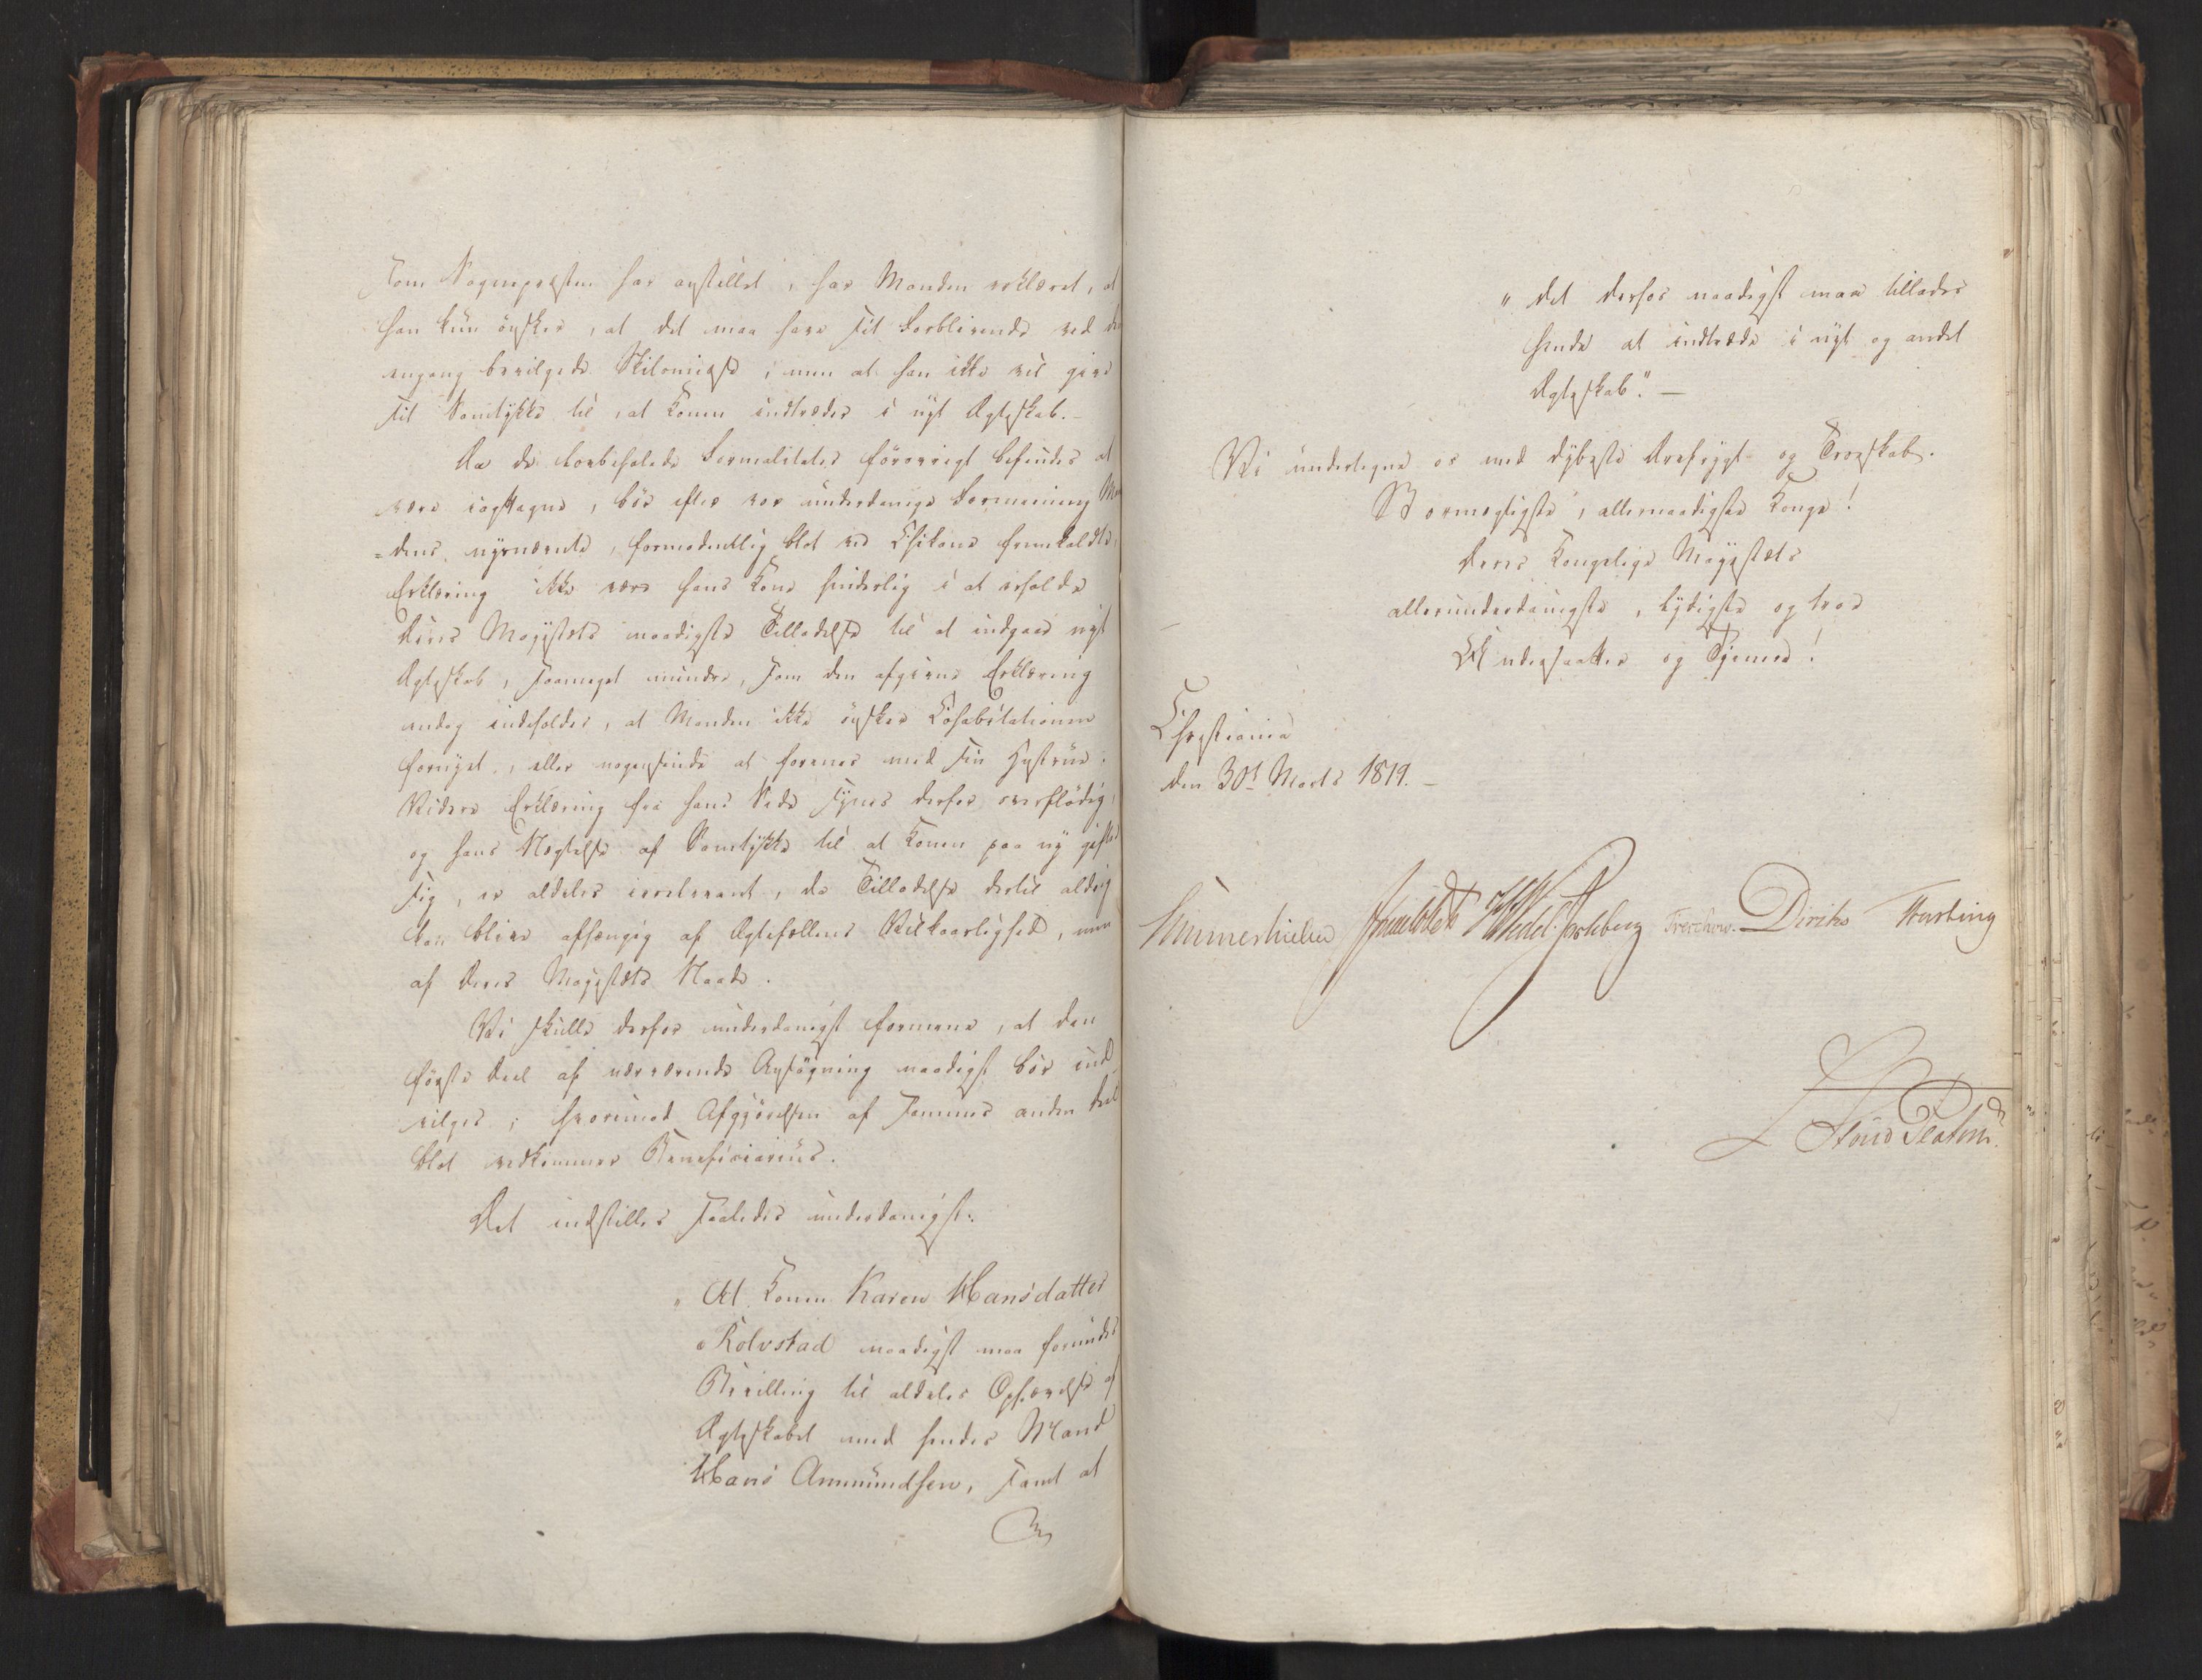 som Sognepresten har anstillet, har Manden erklæret, at
han kun ønsker, at det maa have sit Forblivende ved den
engang bevilgede Skilsmisse, men at han ikke vil give
sit Samtykke til, at Konen indtræder i nyt Ægteskab.-
Da de forbeholdte Formaliteter forøvrigt befindes at
være iagttagne, bør efter vor underdanige Formening Man
=dens nysnævnte, formodentlig blot ved Chikane fremkaldte,
Erklæring ikke være hans Kone hinderlig i at erholde
Deres Majestæts naadigste Tilladelse til at indgaae nyt
Ægteskab, saameget mindre, som den afgivne Erklæring
endog indeholder, at Manden ikke ønsker Cohabitationen
fornyet, eller nogensinde at forenes med sin Hustrue.
Videre Erklæring fra hans Side synes derfor overflødig,
og hans Negtelse af Samtykke til at Konen paa ny gifter
sig, er aldeles irrelevant, da Tilladelse dertil aldrig
kan blive afhængig af Ægtefællens Vilkaarlighed, men
af Deres Majestæts Naade.
Vi skulle derfor underdanigst formene, at den
første Deel af nærværende Ansøgning naadigst bør ind
vilges; hvorimod Afgjørelsen af sammes anden Deel
blot vedkommer Beneficiarius.
Det indstilles saaledes underdanigst:
"At Konen Karen Hansdatter
"Kolvstad naadigst maa forundes
Bevilling til aldeles Ophævelse af
Ægteskabet med hendes Mand
Hans Ammundsen, samt at
" det derfor naadigst maa tillades
hende at indtræde i nyt og andet
Ægteskab". —
Vi undertegne os med dybeste Ærefrygt og Troeskab.
Stormægtigste, allernaadigste Konge!
Deres Kongelige Majestæts
allerunderdanigste, lydigste og troe
Undersaatter og Tjenere!
Christiania
den 30t Marts 1819. —
Sommerhielm Wedel Jarlsberg Treschow. Diriks Krebs Motzfeldt